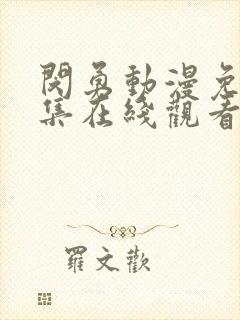 閱勇動漫免
集在綫觀看
羅文歡